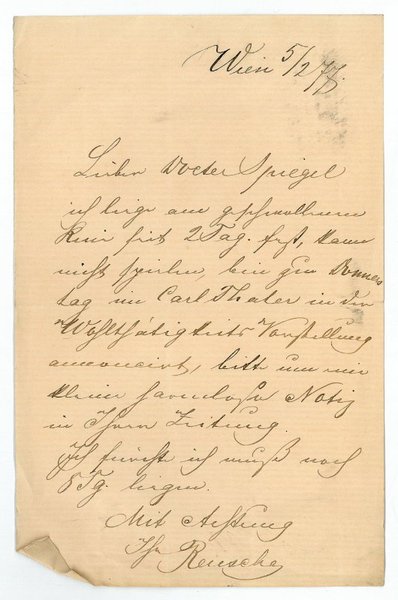 Wien 5/2 77.
Lieber Doctor Spiegel
ich liege am geschwollenem
Knie seit 2 Tag. fest, kann
nicht spielen, bin zum Donners
tag im Carl Theater in der
Wohlthätigkeits Vorstellung
annoncirt, bitte um eine
kleine harmlose Notiz
in Ihrer Zeitung.
Ich fürchte ich muß noch
8 Tg. liegen.
Mit Achtung
Ihr Reusche